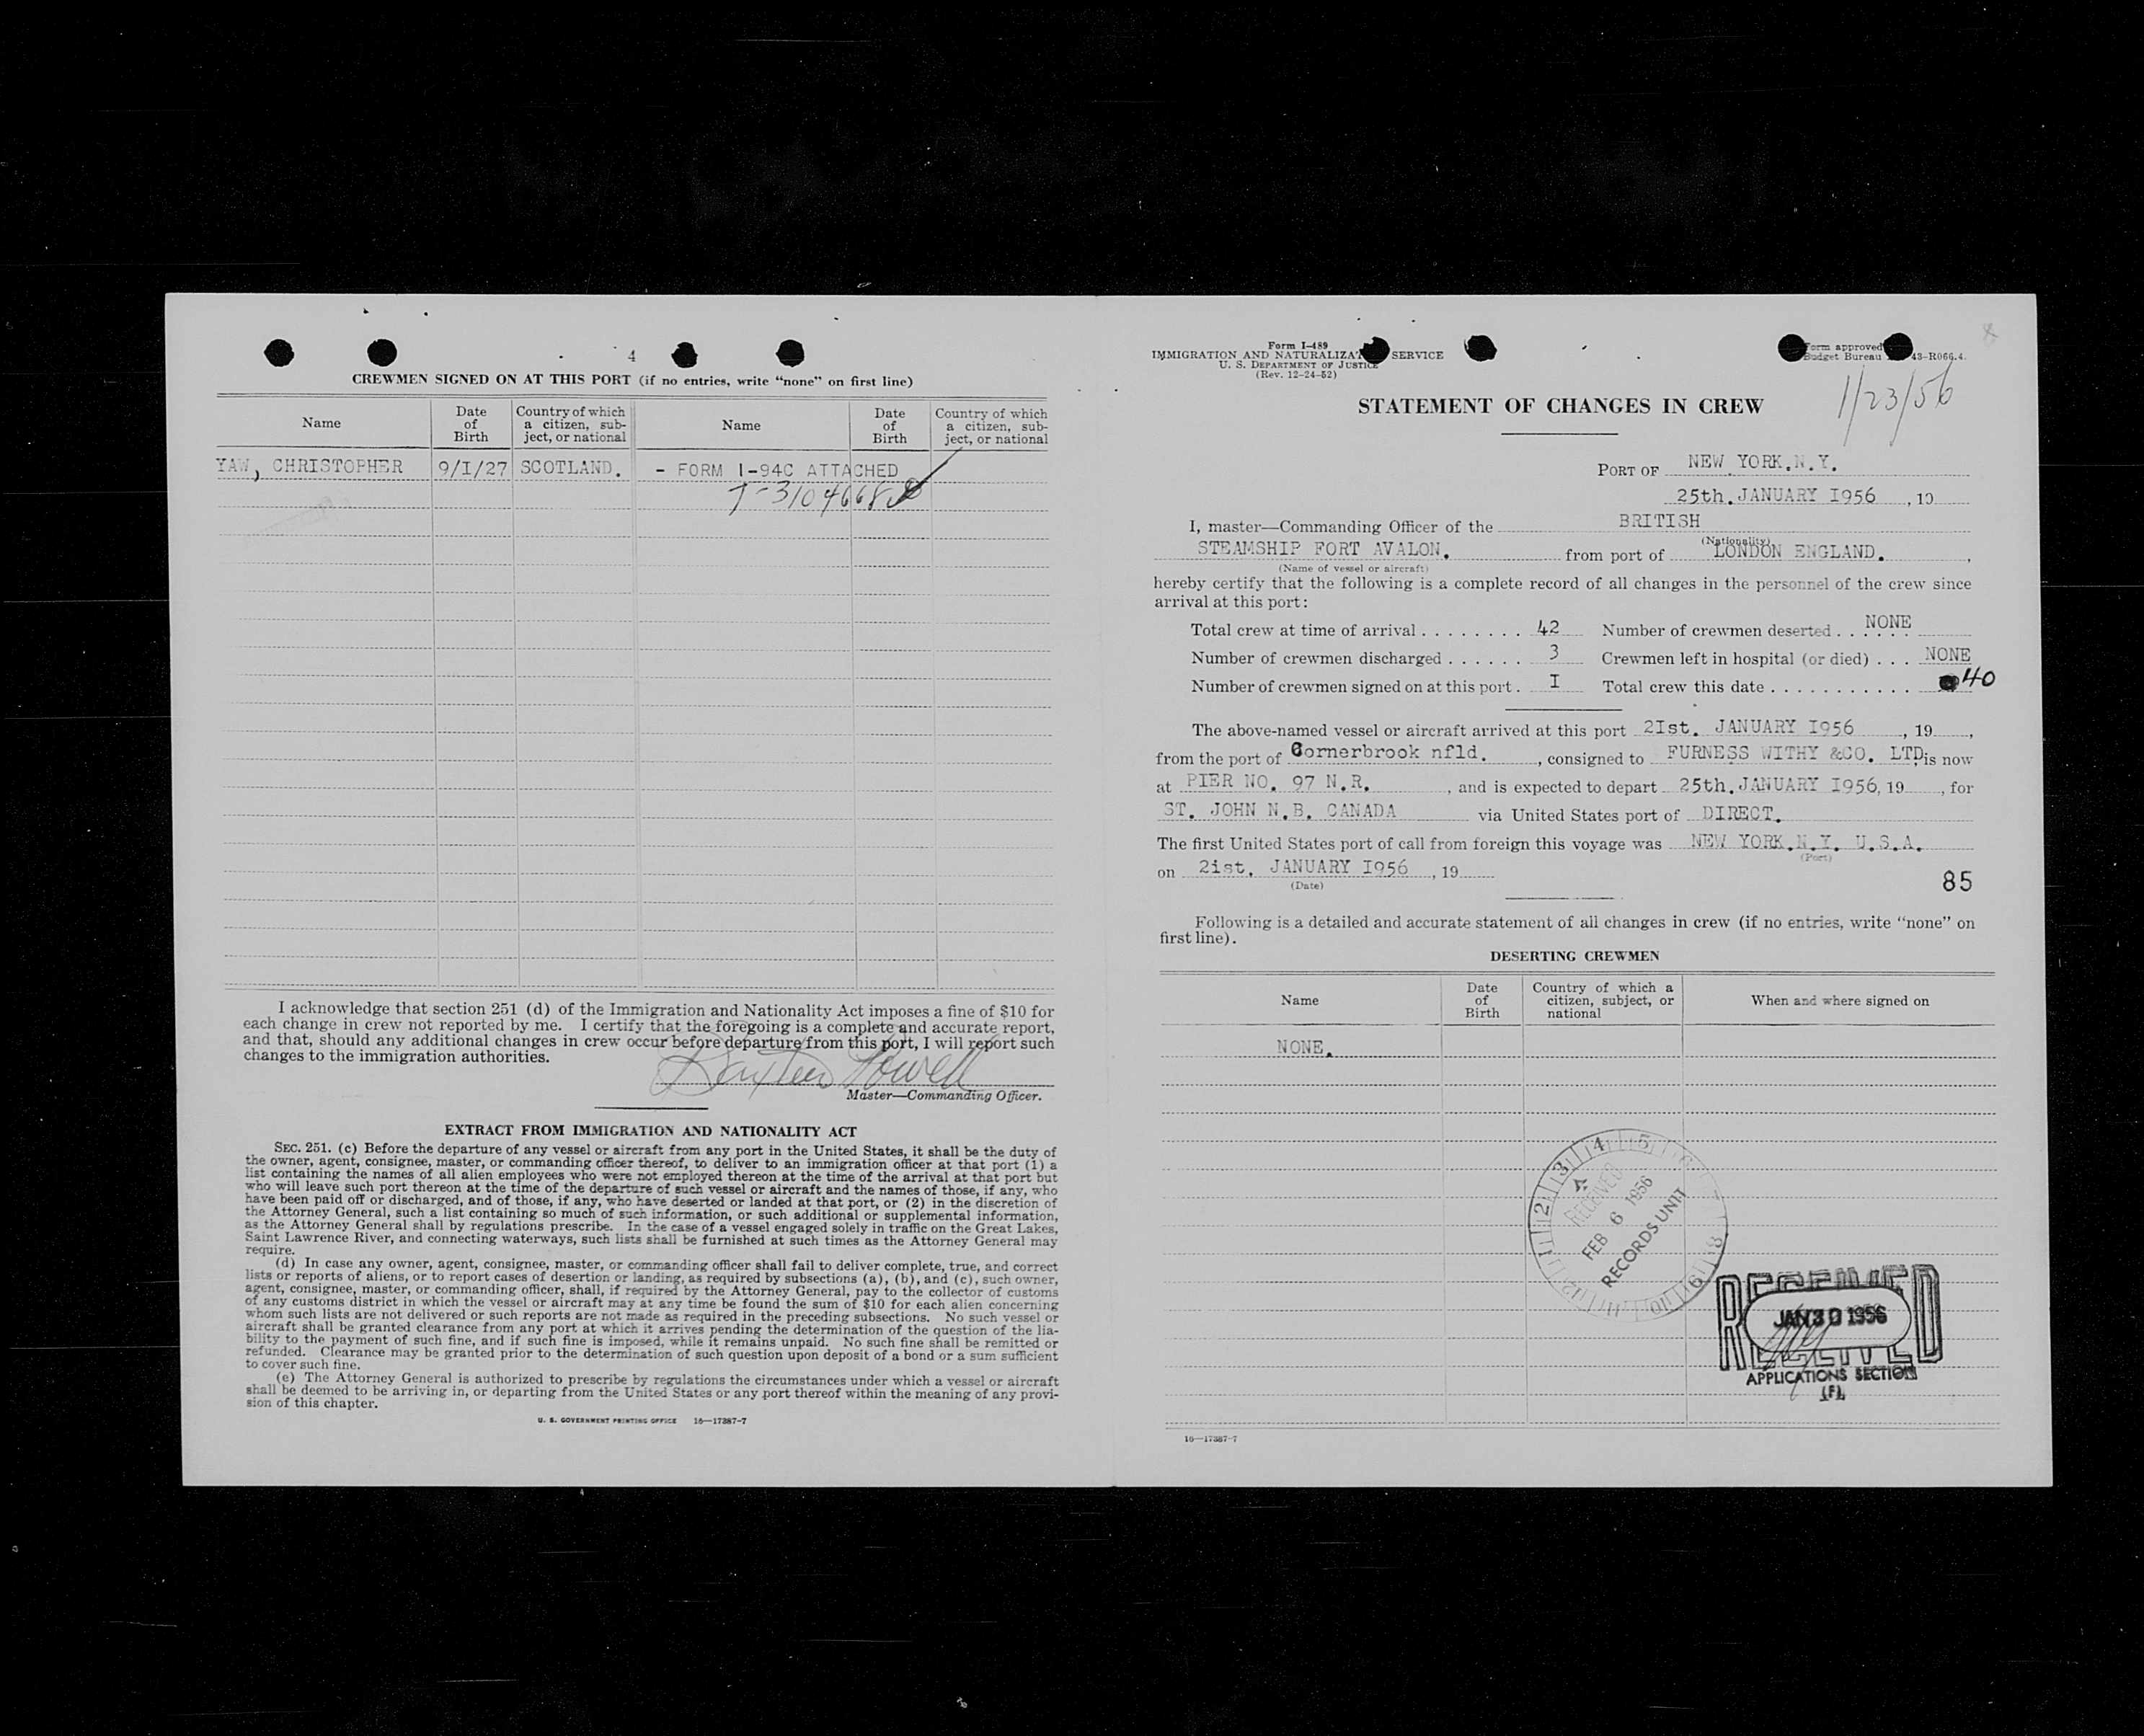 4
CREWMEN SIGNED ON AT THIS PORT (if no entries, write “none” on first line)
Name
Date of Birth
Country of which a citizen, subject, or national
Name
Date of Birth
Country of which a citizen, subject, or national
YAW, CHRISTOPHER 9/I/27 SCOTLAND. - FORM I-94C ATTACHED
T-3104668
I acknowledge that section 251 (d) of the Immigration and Nationality Act imposes a fine of $10 for
each change in crew not reported by me. I certify that the foregoing is a complete and accurate report,
and that, should any additional changes in crew occur before departure from this port, I will report such
changes to the immigration authorities.
Master—Commanding Officer.
EXTRACT FROM IMMIGRATION AND NATIONALITY ACT
SEC. 251. (c) Before the departure of any vessel or aircraft from any port in the United States, it shall be the duty of
the owner, agent, consignee, master, or commanding officer thereof, to deliver to an immigration officer at that port (1) a
list containing the names of all alien employees who were not employed thereon at the time of the arrival at that port but
who will leave such port thereon at the time of the departure of such vessel or aircraft and the names of those, if any, who
have been paid off or discharged, and of those, if any, who have deserted or landed at that port, or (2) in the discretion of
the Attorney General, such a list containing so much of such information, or such additional or supplemental information,
as the Attorney General shall by regulations prescribe. In the case of a vessel engaged solely in traffic on the Great Lakes,
Saint Lawrence River, and connecting waterways, such lists shall be furnished at such times as the Attorney General may
require.
(d) In case any owner, agent, consignee, master, or commanding officer shall fail to deliver complete, true, and correct
lists or reports of aliens, or to report cases of desertion or landing, as required by subsections (a), (b), and (c), such owner,
agent, consignee, master, or commanding officer, shall, if required by the Attorney General, pay to the collector of customs
of any customs district in which the vessel or aircraft may at any time be found the sum of $10 for each alien concerning
whom such lists are not delivered or such reports are not made as required in the preceding subsections. No such vessel or
aircraft shall be granted clearance from any port at which it arrives pending the determination of the question of the lia-
bility to the payment of such fine, and if such fine is imposed, while it remains unpaid. No such fine shall be remitted or
refunded. Clearance may be granted prior to the determination of such question upon deposit of a bond or a sum sufficient
to cover such fine.
(e) The Attorney General is authorized to prescribe by regulations the circumstances under which a vessel or aircraft
shall be deemed to be arriving in, or departing from the United States or any port thereof within the meaning of any provi-
sion of this chapter.
U. S. GOVERNMENT PRINTING OFFICE 16—17387-7
Form I-489
IMMIGRATION AND NATURALIZAT SERVICE
U. S. DEPARTMENT OF JUSTICE
(Rev. 12-24-52)
Form approved
Budget Bureau 43-R066.4.
1/23/56
STATEMENT OF CHANGES IN CREW
PORT OF NEW YORK.N.Y.
25th. JANUARY I956, 19
I, master—Commanding Officer of the BRITISH
(Nationality)
STEAMSHIP FORT AVALON. from port of LONDON ENGLAND.,
(Name of vessel or aircraft)
hereby certify that the following is a complete record of all changes in the personnel of the crew since
arrival at this port:
Total crew at time of arrival 42 Number of crewmen deserted NONE
Number of crewmen discharged 3 Crewmen left in hospital (or died) NONE
Number of crewmen signed on at this port I Total crew this date 40
The above-named vessel or aircraft arrived at this port 2Ist. JANUARY I956, 19,
from the port of Cornerbrook nfld., consigned to FURNESS WITHY &CO. LTD is now
at PIER NO. 97 N.R., and is expected to depart 25th. JANUARY I956, 19, for
ST. JOHN N.B. CANADA via United States port of DIRECT.
The first United States port of call from foreign this voyage was NEW YORK.N.Y. U.S.A.
(Port)
on 2ist. JANUARY I956, 19
(Date)
85
Following is a detailed and accurate statement of all changes in crew (if no entries, write “none” on
first line).
DESERTING CREWMEN
Name
Date of Birth
Country of which a citizen, subject, or national
When and where signed on
NONE.
RECEIVED
FEB 6 1956
RECORDS UNIT
RECEIVED
JAN 30 1956
APPLICATIONS SECTION
(F)
16—17387-7